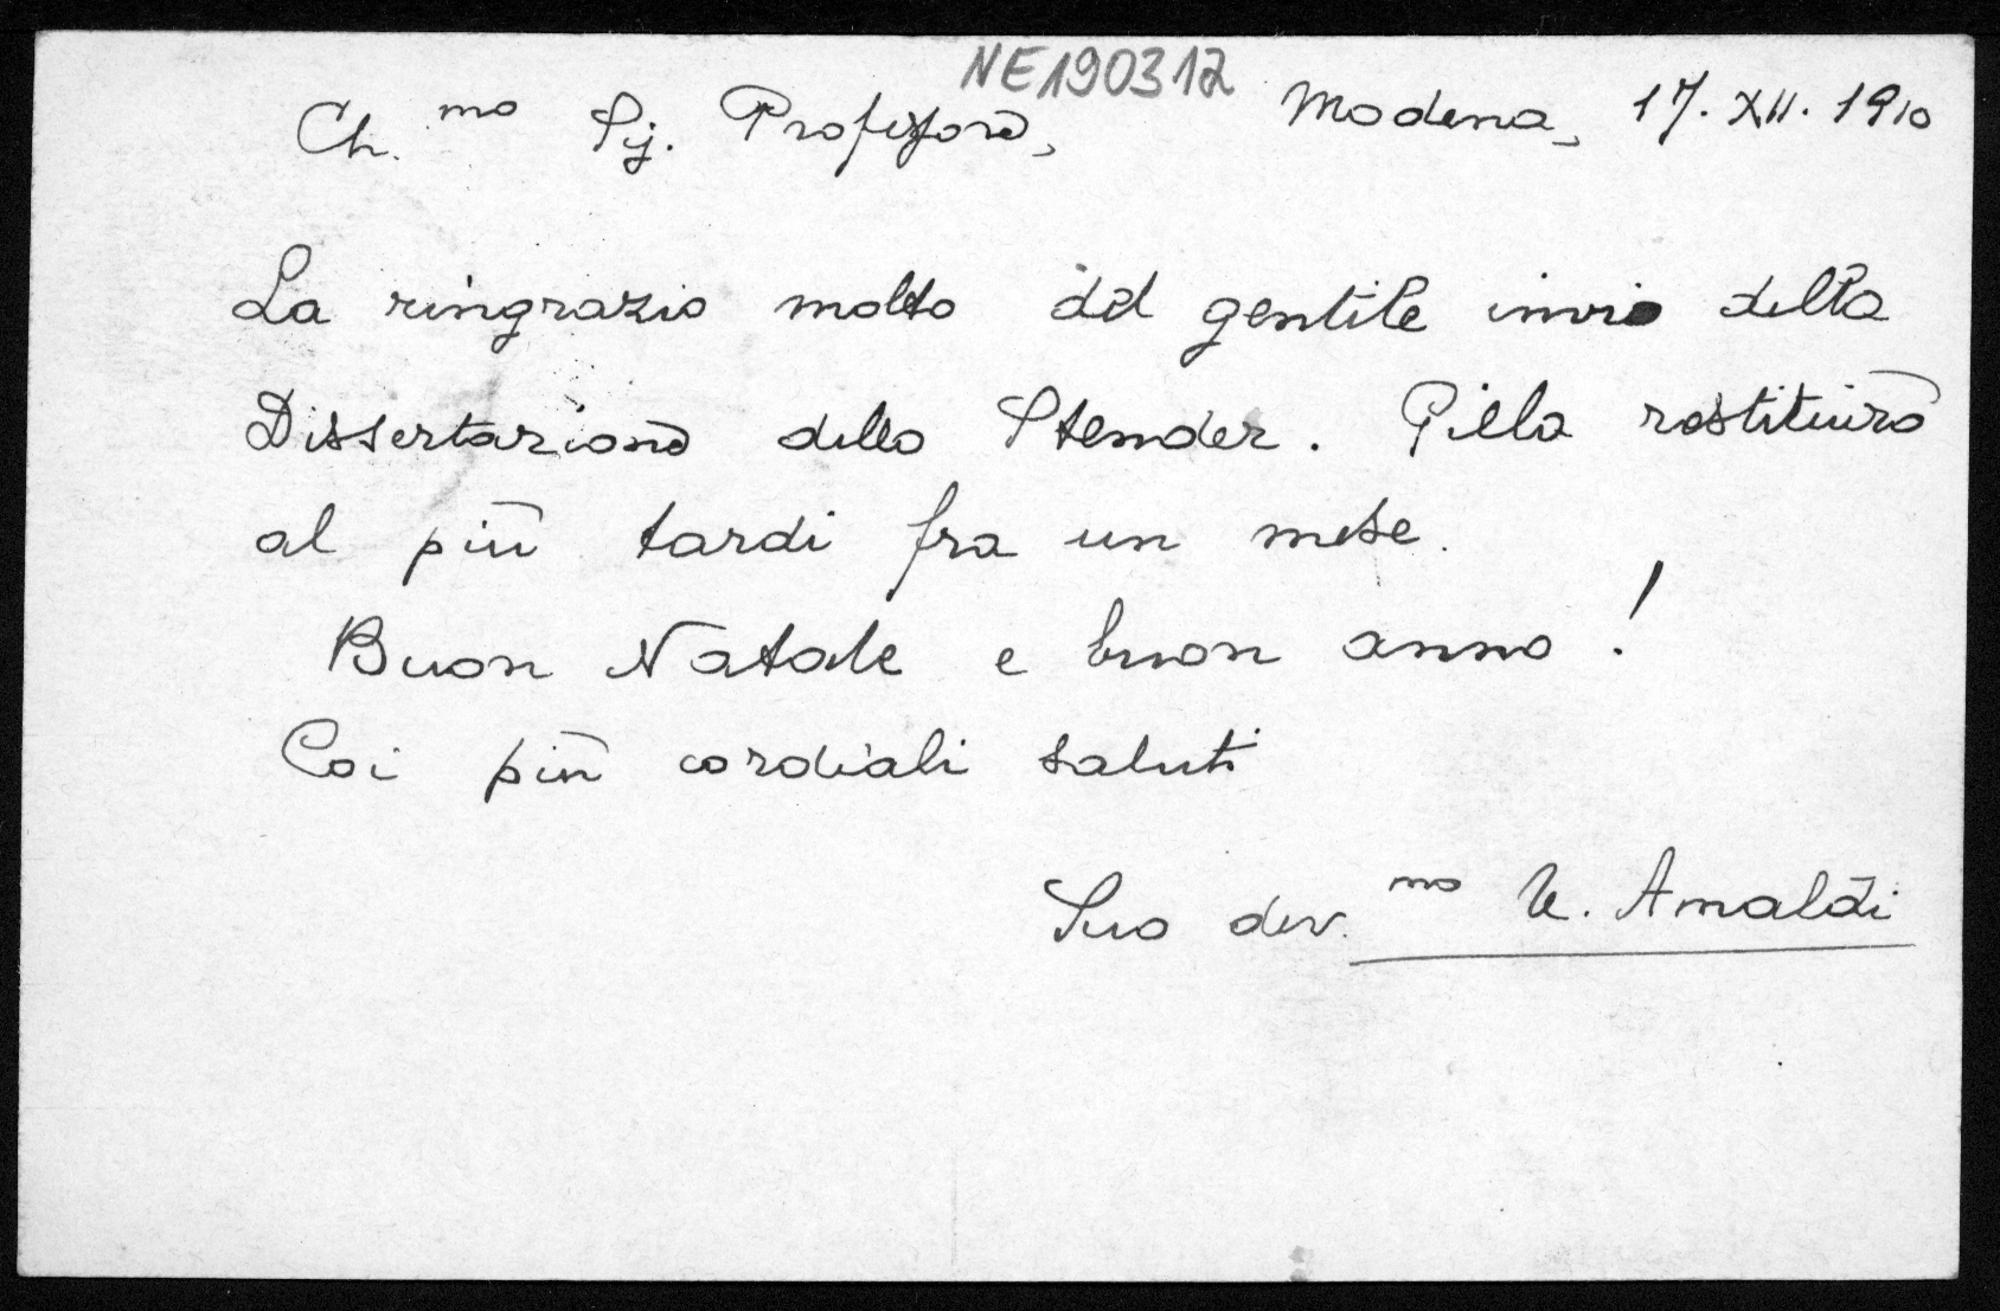 NE190312
Ch.mo Sig. Professore, Modena, 17. XII. 1910
La ringrazio molto del gentile invio della
Dissertazione dello Stender. Gliela restituirò
al più tardi fra un mese.
Buon Natale e buon anno!
Coi più cordiali saluti
Suo dev.mo U. Amaldi